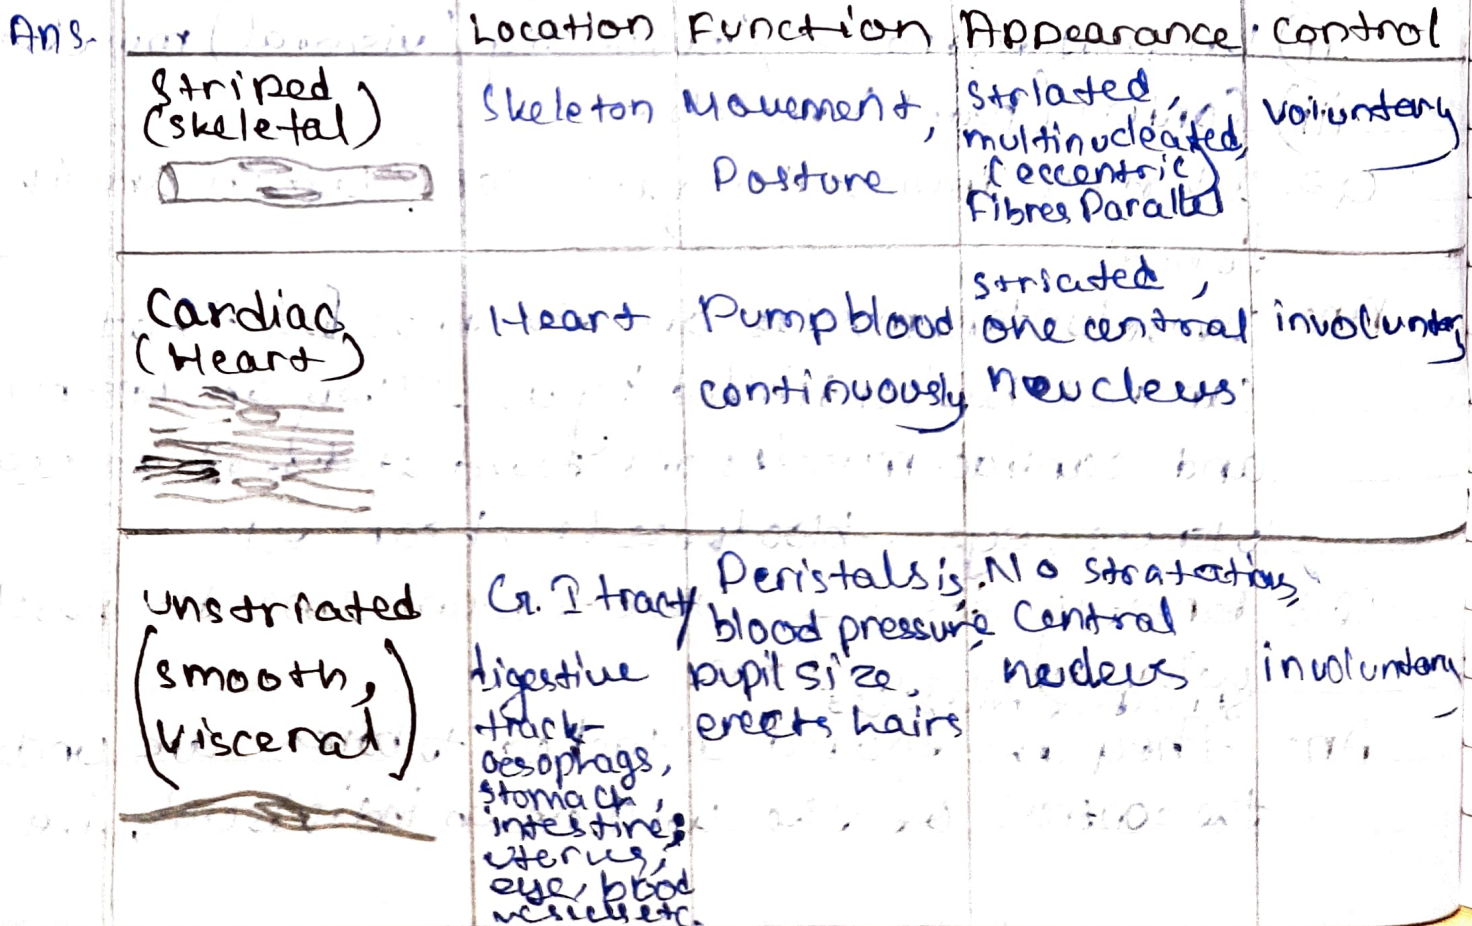 Ans.
Location Function Appearance control
Striped
(skeletal)
Skeleton
Movement,
Posture
striated,
multinucleated,
(eccentric)
Fibres Parallel
voluntary
Cardiac
(Heart)
Heart
Pump blood
continuously
striated,
one central
neucleus
involuntary
unstriated
(smooth,
visceral)
G. I tract/
digestive
track-
oesophags,
stomach,
intestine,
uterus,
eye, blood
etc.
Peristalsis,
blood pressure,
pupil size,
erects hairs
No
Central
nucleus
involuntary